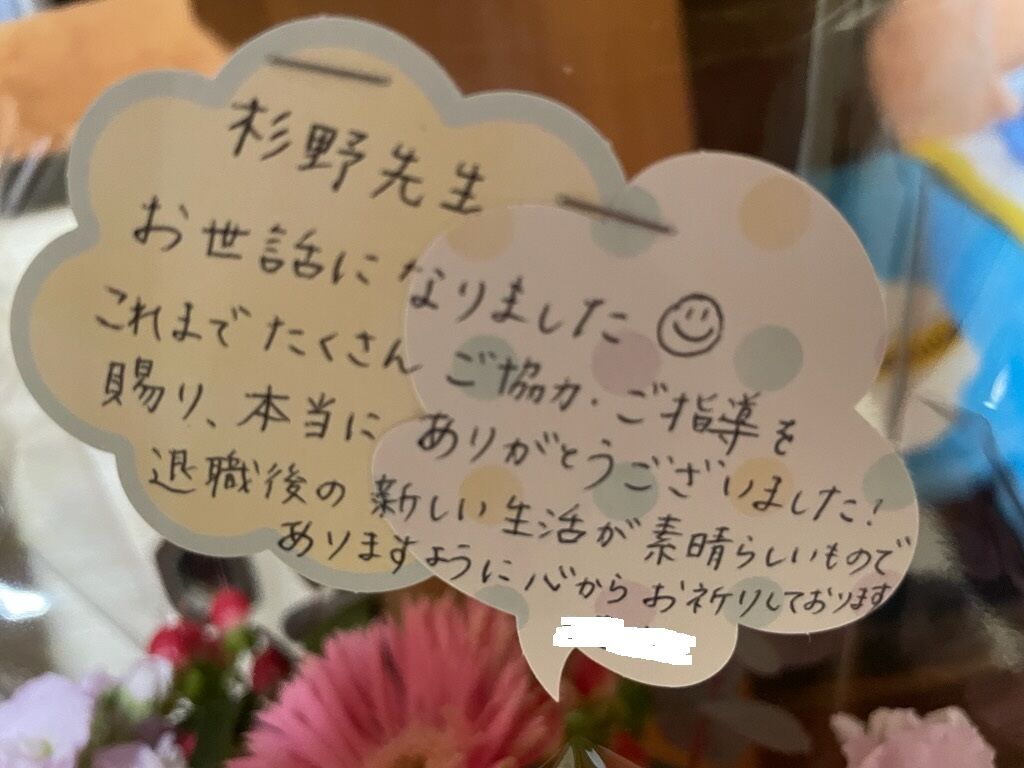 杉野先生
お世話になりました
これまでたくさんご協力・ご指導を
賜り、本当にありがとうございました!
退職後の新しい生活が素晴らしいもので
ありますように心からお祈りしております